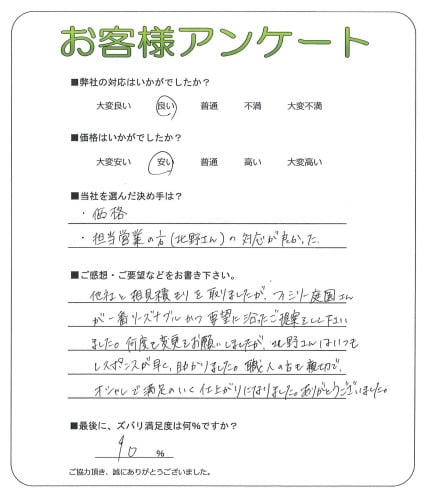 お客様アンケート
■弊社の対応はいかがでしたか？
大変良い 良い 普通 不満 大変不満
■価格はいかがでしたか？
大変安い 安い 普通 高い 大変高い
■当社を選んだ決め手は？
・価格
・担当営業の方(北野さん)の対応が良かった.
■ご感想・ご要望などをお書き下さい。
他社と相見積もりを取りましたが、ファミリー庭園さん
が一番リーズナブルかつ要望に沿ったご提案をして下さい
ました。何度も変更をお願いしましたが、北野さんはいつも
レスポンスが早く、助かりました。職人の方も親切で、
オシャレで満足のいく仕上がりになりました。ありがとうございました。
■最後に、ズバリ満足度は何%ですか？
90 %
ご協力頂き、誠にありがとうございました。